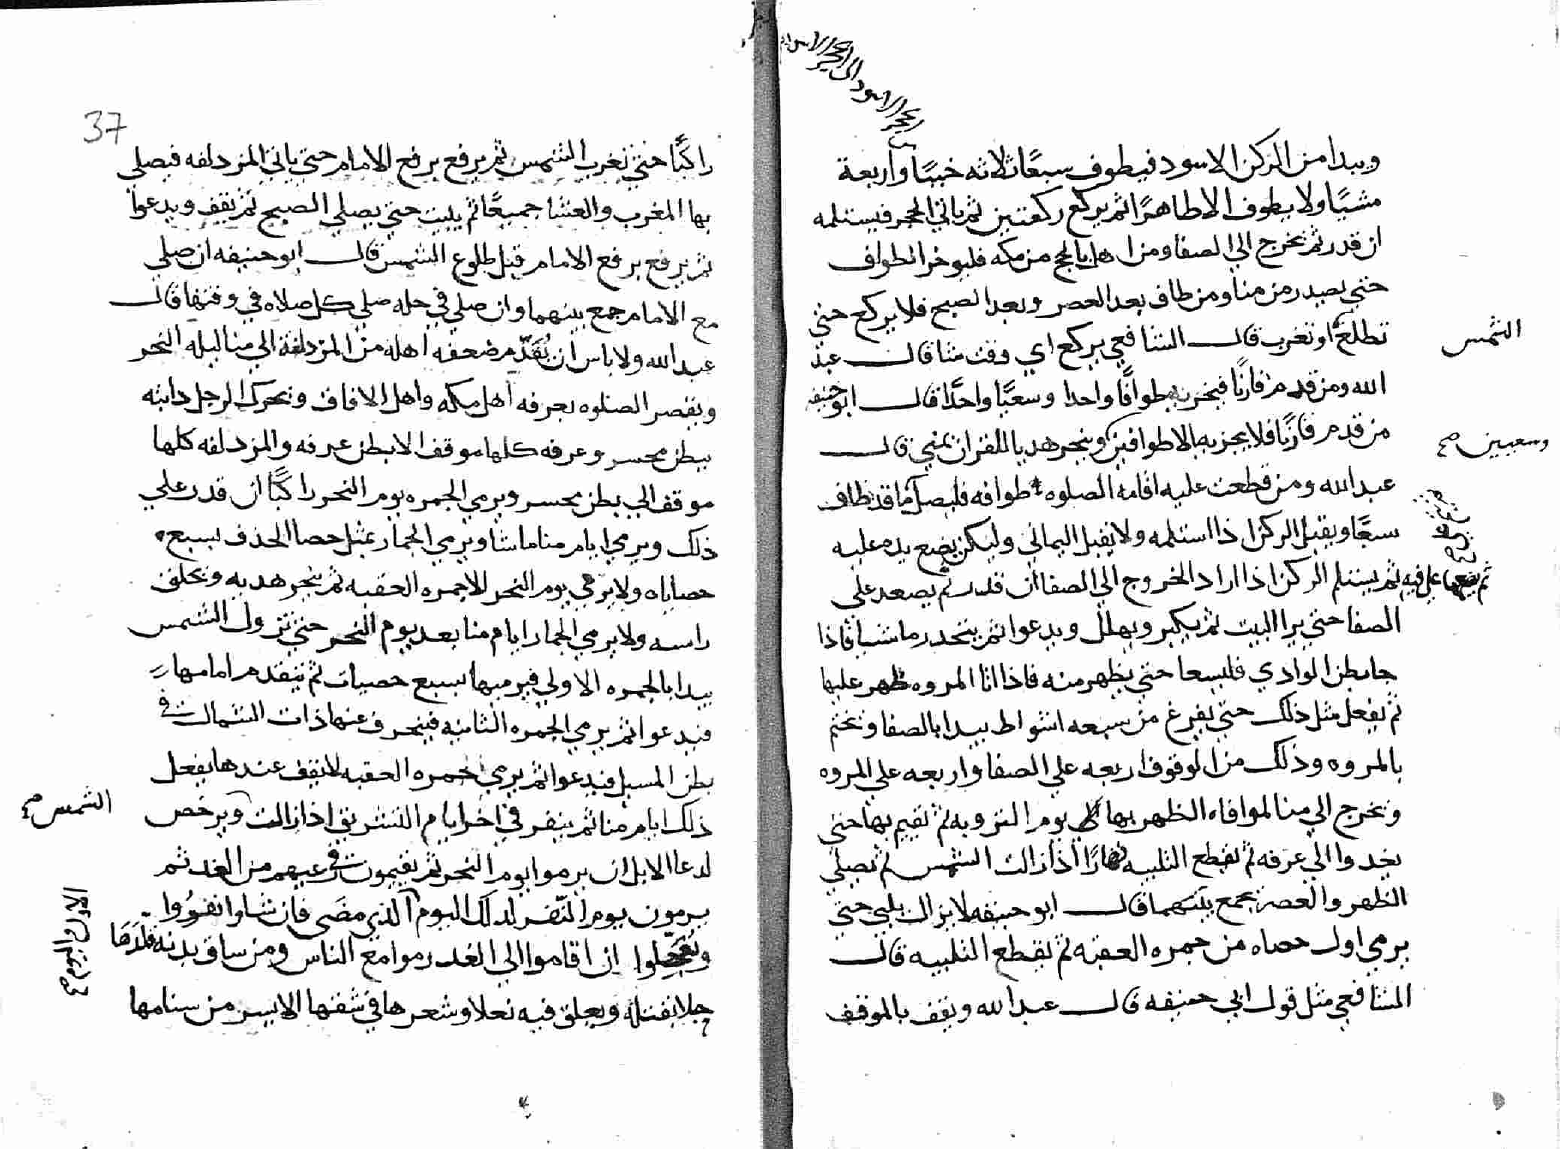 الحجر الاسود الى الحجر الاسود
ويبدا من الركن الاسود فيطوف سبعًا ثلاثه خببًا واربعة
مشيًا ولا يطوف الا طاهرًا ثم يركع ركعتين ثم ياتي الحجر فيستلمه
ان قدر ثم يخرج الي الصفا ومن اهل بالحج من مكه فليوخر الطواف
حتي يصدر من منا ومن طاف بعد العصر وبعد الصبح فلا يركع حتي
تطلع او تغرب قال الشافعي يركع اي وقت شا قال عبد
الشمس
الله ومن قدم قارنًا فيجزيه طوافًا واحدا وسعيًا واحدًا قال ابو حنيفه
من قدم قارنًا فلا يجزيه الا طوافين وينحر هديا للقران بمني قال
وسعيين صح
عبد الله ومن قطعت عليه اقامة الصلوه طوافه فليصل ما قد طاف
سبعًا ويقبل الركن اذا استلمه ولا يقبل اليماني وليكن يضع يده عليه
ثم يضعها علي فيه ثم يستلم الركن اذا اراد الخروج الي الصفا ان قدر ثم يصعد علي
الصفا حتي يرا البيت ثم يكبر ويهلل ويدعوا ثم ينحدر ماشيا فاذا
جا بطن الوادي فليسعا حتي يظهر منه فاذا اتا المروه ظهر عليها
ثم يفعل مثل ذلك حتي يفرغ من سبعه اشواط يبدا بالصفا ويختم
بالمروه وذلك من الوقوف اربعه علي الصفا واربعه علي المروه
ويخرج الي منا لموافاه الظهر بها يوم الترويه ثم تقيم بها حتي
يغدوا الي عرفه ثم يقطع التلبيه نهارًا اذا زالت الشمس ثم تصلي
الظهر والعصر يجمع بينهما قال ابو حنيفه لا يزال يلبي حتي
يرمي اول حصاه من جمره العقبه ثم يقطع التلبيه قال
الشافعي مثل قول ابي حنيفه قال عبد الله ويقف بالموقف
37
راكبًا حتي تغرب الشمس ثم يرفع برفع الامام حتي ياتي المزدلفه فيصلي
بها المغرب والعشا جميعًا ثم يبيت حتي يصلي الصبح ثم يقف ويدعوا
ثم يرفع برفع الامام قبل طلوع الشمس قال ابو حنيفه ان صلي
مع الامام جمع بينهما وان صلي في رحله صلي كل صلاه في وقتها قال
عبد الله ولا باس ان يُقَدّم ضعفه اهله من المزدلفة الي منا ليله النحر
ويقصر الصلوه بعرفه اهل مكه واهل الافاق ويحرك الرجل دابته
ببطن محسر وعرفه كلها موقف الا بطن عرفه والمزدلفه كلها
موقف الي بطن محسر ويرمي الجمره يوم النحر راكبًا ان قدر علي
ذلك ويرمي ايام منا ماشا ويرمي الجمار بمثل حصا الخذف بسبع
حصاياه ولا يرمي يوم النحر الا جمره العقبه ثم ينحر هديه ويحلق
راسه ولا يرمي الجمار ايام منا بعد يوم النحر حتي تزول الشمس
يبدا بالجمره الاولي فيرميها بسبع حصيات ثم يتقدم امامها
فيدعوا ثم يرمي الجمره الثانيه فينحرف عنها ذات الشمال في
بطن المسيل فيدعوا ثم يرمي جمره العقبه لا يقف عندها يفعل
ذلك ايام منا ثم ينفر في اخر ايام التشريق اذا زالت ويرخص
الشمس صح
لدعا الابل ان يرموا يوم النحر ثم يقيمون في رعيهم من الغد ثم
يرمون يوم النفر لذلك اليوم الذي مضَى فان شاوا نفروا
وتعجلوا ان اقاموا الي الغد رموا مع الناس ومن ساق بدنه قلّدَهَا
حبلا يفتله ويعلق فيه نعلا وشعرها في شقها الايسر من سنامها